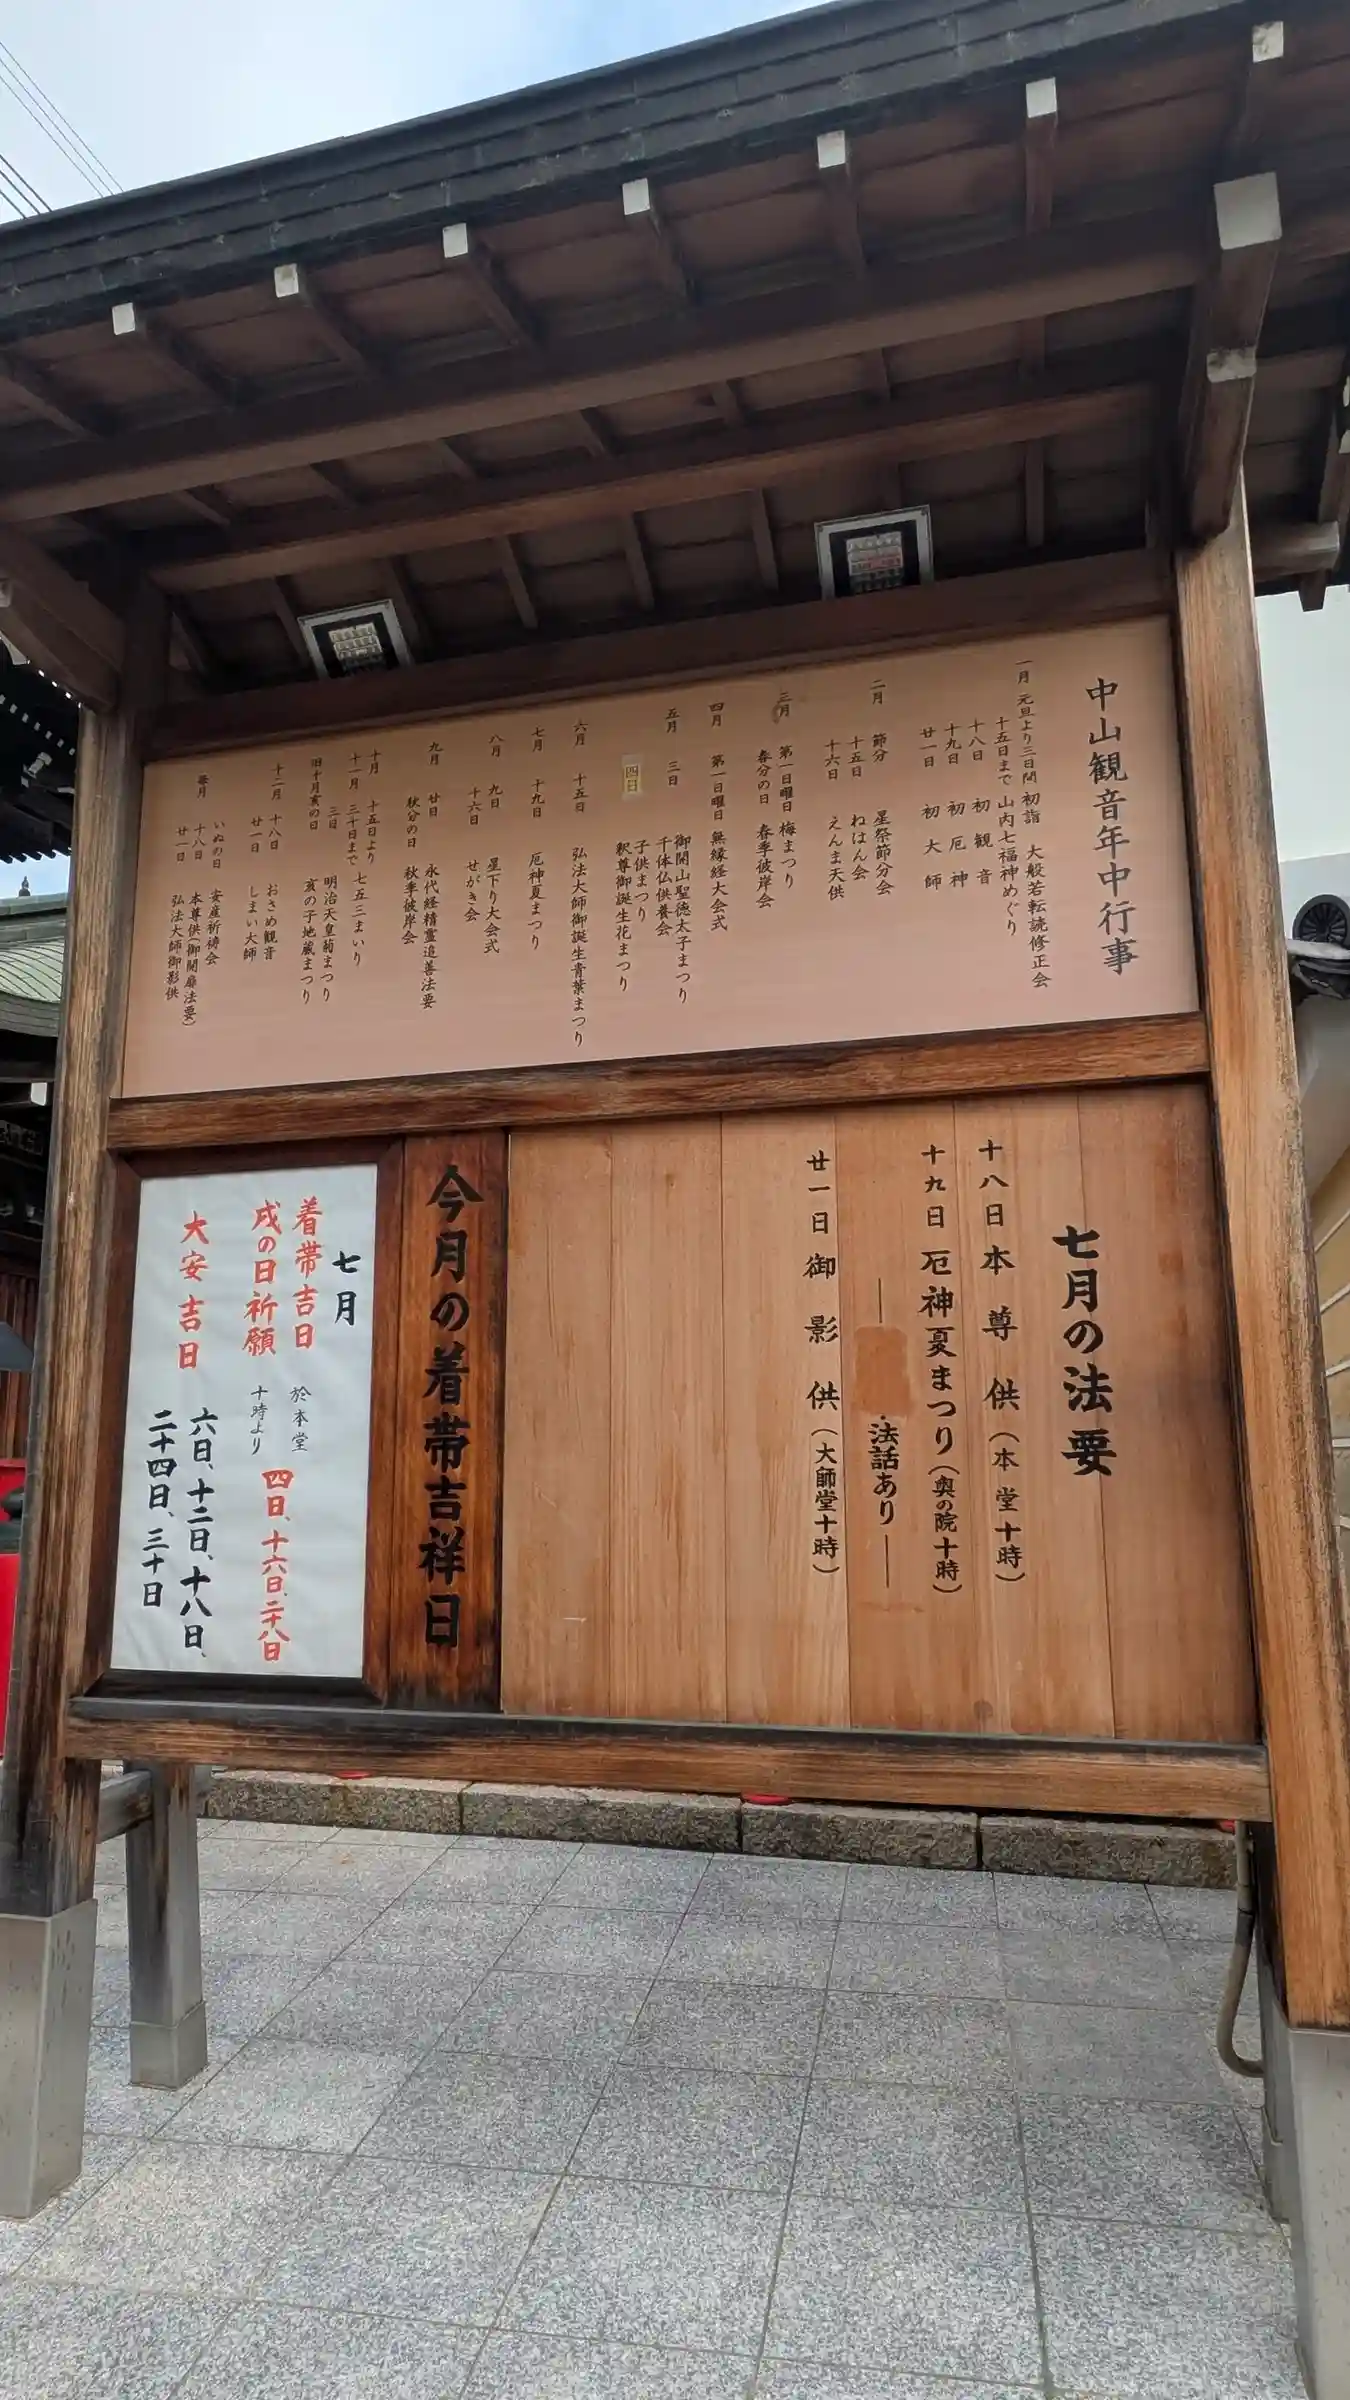 中山観音年中行事
一月 元旦より三日間 初詣 大般若転読修正会
十五日まで 山内七福神めぐり
十八日 初観音
十九日 初厄神
廿一日 初大師
二月 節分 星祭節分会
十五日 ねはん会
十六日 えんま天供
三月 第一日曜日 梅まつり
春分の日 春季彼岸会
四月 第一日曜日 無縁経大会式
五月 三日 御開山聖徳太子まつり
千体仏供養会
子供まつり
四日 釈尊御誕生花まつり
六月 十五日 弘法大師御誕生青葉まつり
七月 十九日 厄神夏まつり
八月 九日 星下り大会式
十六日 せがき会
九月 廿日 永代経精霊追善法要
秋分の日 秋季彼岸会
十月 十五日より 七五三まいり
十一月 三十日まで
三日 明治天皇菊まつり
旧十月亥の日 亥の子地蔵まつり
十二月 十八日 おさめ観音
廿一日 しまい大師
毎月 いぬの日 安産祈祷会
十八日 本尊供(御開扉法要)
廿一日 弘法大師御影供
七月の法要
十八日 本尊供(本堂十時)
十九日 厄神夏まつり(奥の院十時)
― 法話あり ―
廿一日 御影供(大師堂十時)
今月の着帯吉祥日
七月
着帯吉日 於本堂
戌の日祈願 十時より 四日、十六日、二十八日
大安吉日 六日、十二日、十八日、
二十四日、三十日